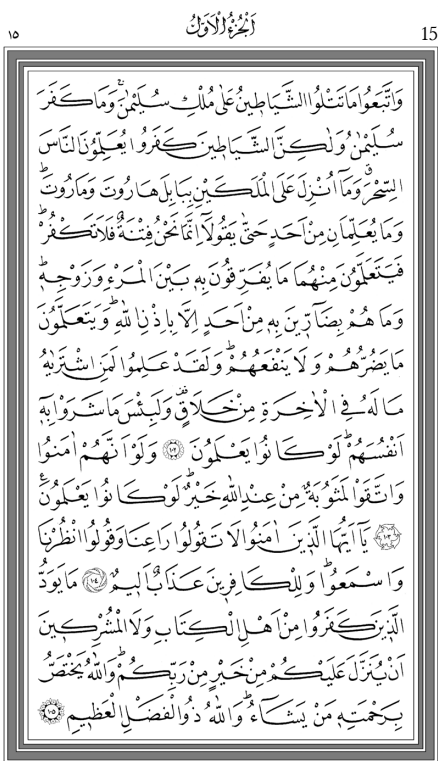 ١٥ اَلْجُزْءُ الْاَوَّلُ 15
وَاتَّبَعُوا مَا تَتْلُوا الشَّيَاط۪ينُ عَلٰى مُلْكِ سُلَيْمٰنَۚ وَمَا كَفَرَ
سُلَيْمٰنُ وَلٰكِنَّ الشَّيَاط۪ينَ كَفَرُوا يُعَلِّمُونَ النَّاسَ
السِّحْرَۗ وَمَٓا اُنْزِلَ عَلَى الْمَلَكَيْنِ بِبَابِلَ هَارُوتَ وَمَارُوتَۜ
وَمَا يُعَلِّمَانِ مِنْ اَحَدٍ حَتّٰى يَقُولَٓا اِنَّمَا نَحْنُ فِتْنَةٌ فَلَا تَكْفُرْۜ
فَيَتَعَلَّمُونَ مِنْهُمَا مَا يُفَرِّقُونَ بِه۪ بَيْنَ الْمَرْءِ وَزَوْجِه۪ۜ
وَمَا هُمْ بِضَٓارّ۪ينَ بِه۪ مِنْ اَحَدٍ اِلَّا بِاِذْنِ اللّٰهِۜ وَيَتَعَلَّمُونَ
مَا يَضُرُّهُمْ وَلَا يَنْفَعُهُمْۜ وَلَقَدْ عَلِمُوا لَمَنِ اشْتَرٰيهُ
مَا لَهُ فِي الْاٰخِرَةِ مِنْ خَلَاقٍۜ وَلَبِئْسَ مَا شَرَوْا بِه۪ٓ
اَنْفُسَهُمْۜ لَوْ كَانُوا يَعْلَمُونَ ﴿١٠٢﴾ وَلَوْ اَنَّهُمْ اٰمَنُوا
وَاتَّقَوْا لَمَثُوبَةٌ مِنْ عِنْدِ اللّٰهِ خَيْرٌۜ لَوْ كَانُوا يَعْلَمُونَ۟
﴿١٠٣﴾ يَٓا اَيُّهَا الَّذ۪ينَ اٰمَنُوا لَا تَقُولُوا رَاعِنَا وَقُولُوا انْظُرْنَا
وَاسْمَعُواۜ وَلِلْكَافِر۪ينَ عَذَابٌ اَل۪يمٌ ﴿١٠٤﴾ مَا يَوَدُّ
الَّذ۪ينَ كَفَرُوا مِنْ اَهْلِ الْكِتَابِ وَلَا الْمُشْرِك۪ينَ
اَنْ يُنَزَّلَ عَلَيْكُمْ مِنْ خَيْرٍ مِنْ رَبِّكُمْۜ وَاللّٰهُ يَخْتَصُّ
بِرَحْمَتِه۪ مَنْ يَشَٓاءُۜ وَاللّٰهُ ذُو الْفَضْلِ الْعَظ۪يمِ ﴿١٠٥﴾